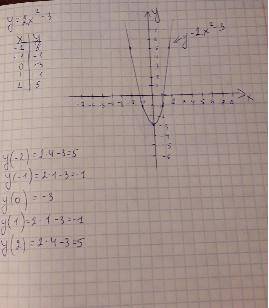 y=2x²-3
x y
-2 5
-1 -1
0 -3
1 -1
2 5
y
y=2x²-3
x
y(-2)=2·4-3=5
y(-1)=2·1-3=-1
y(0) = -3
y(1)=2·1-3=-1
y(2)=2·4-3=5